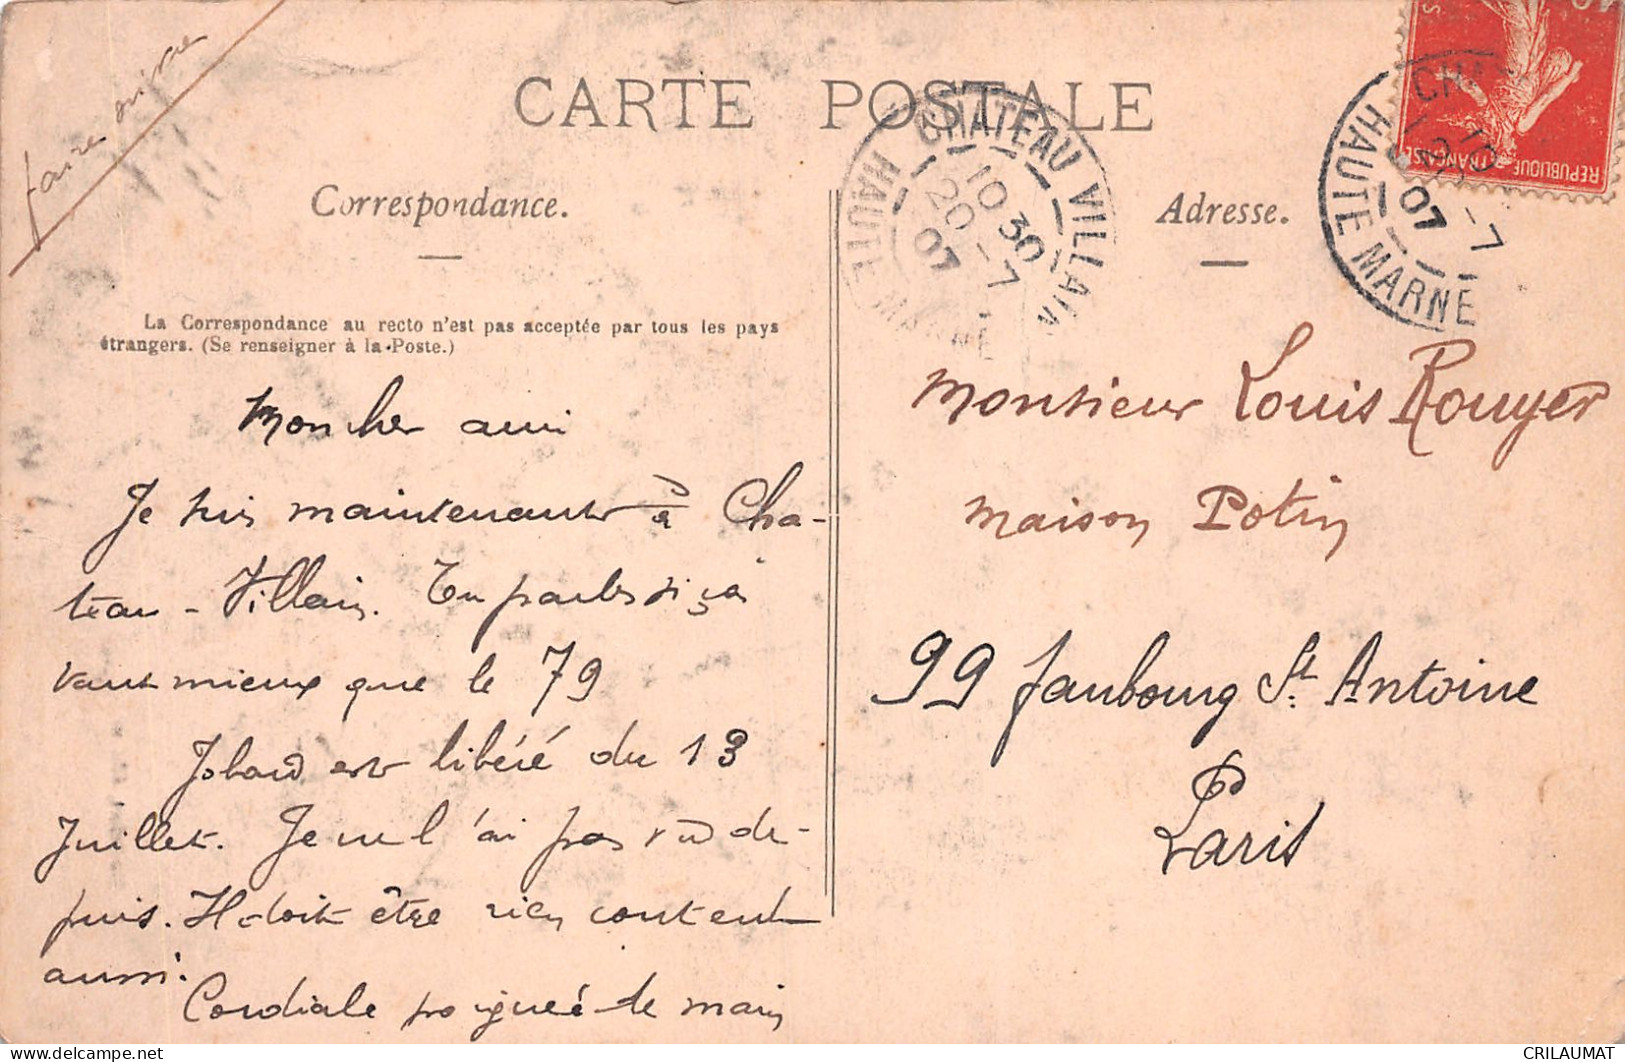 faire suivre
CARTE POSTALE
Correspondance.
Adresse.
La Correspondance au recto n'est pas acceptée par tous les pays
étrangers. (Se renseigner à la Poste.)
Mon cher ami
Je suis maintenant à Cha-
teau-Villain. Tu parles si ça
vaut mieux que le 79
Jobard est libéré du 13
Juillet. Je ne l'ai pas vu de-
puis. Il doit être bien content
aussi.
Cordiale poignée de main
CHATEAU VILLAIN
10 30
20 - 7
07
HAUTE MARNE
REPUBLIQUE FRANÇAISE
10
CHA
10
20 - 7
07
HAUTE MARNE
Monsieur Louis Rouyer
maison Potin
99 faubourg St. Antoine
Paris
delcampe.net
CRILAUMAT